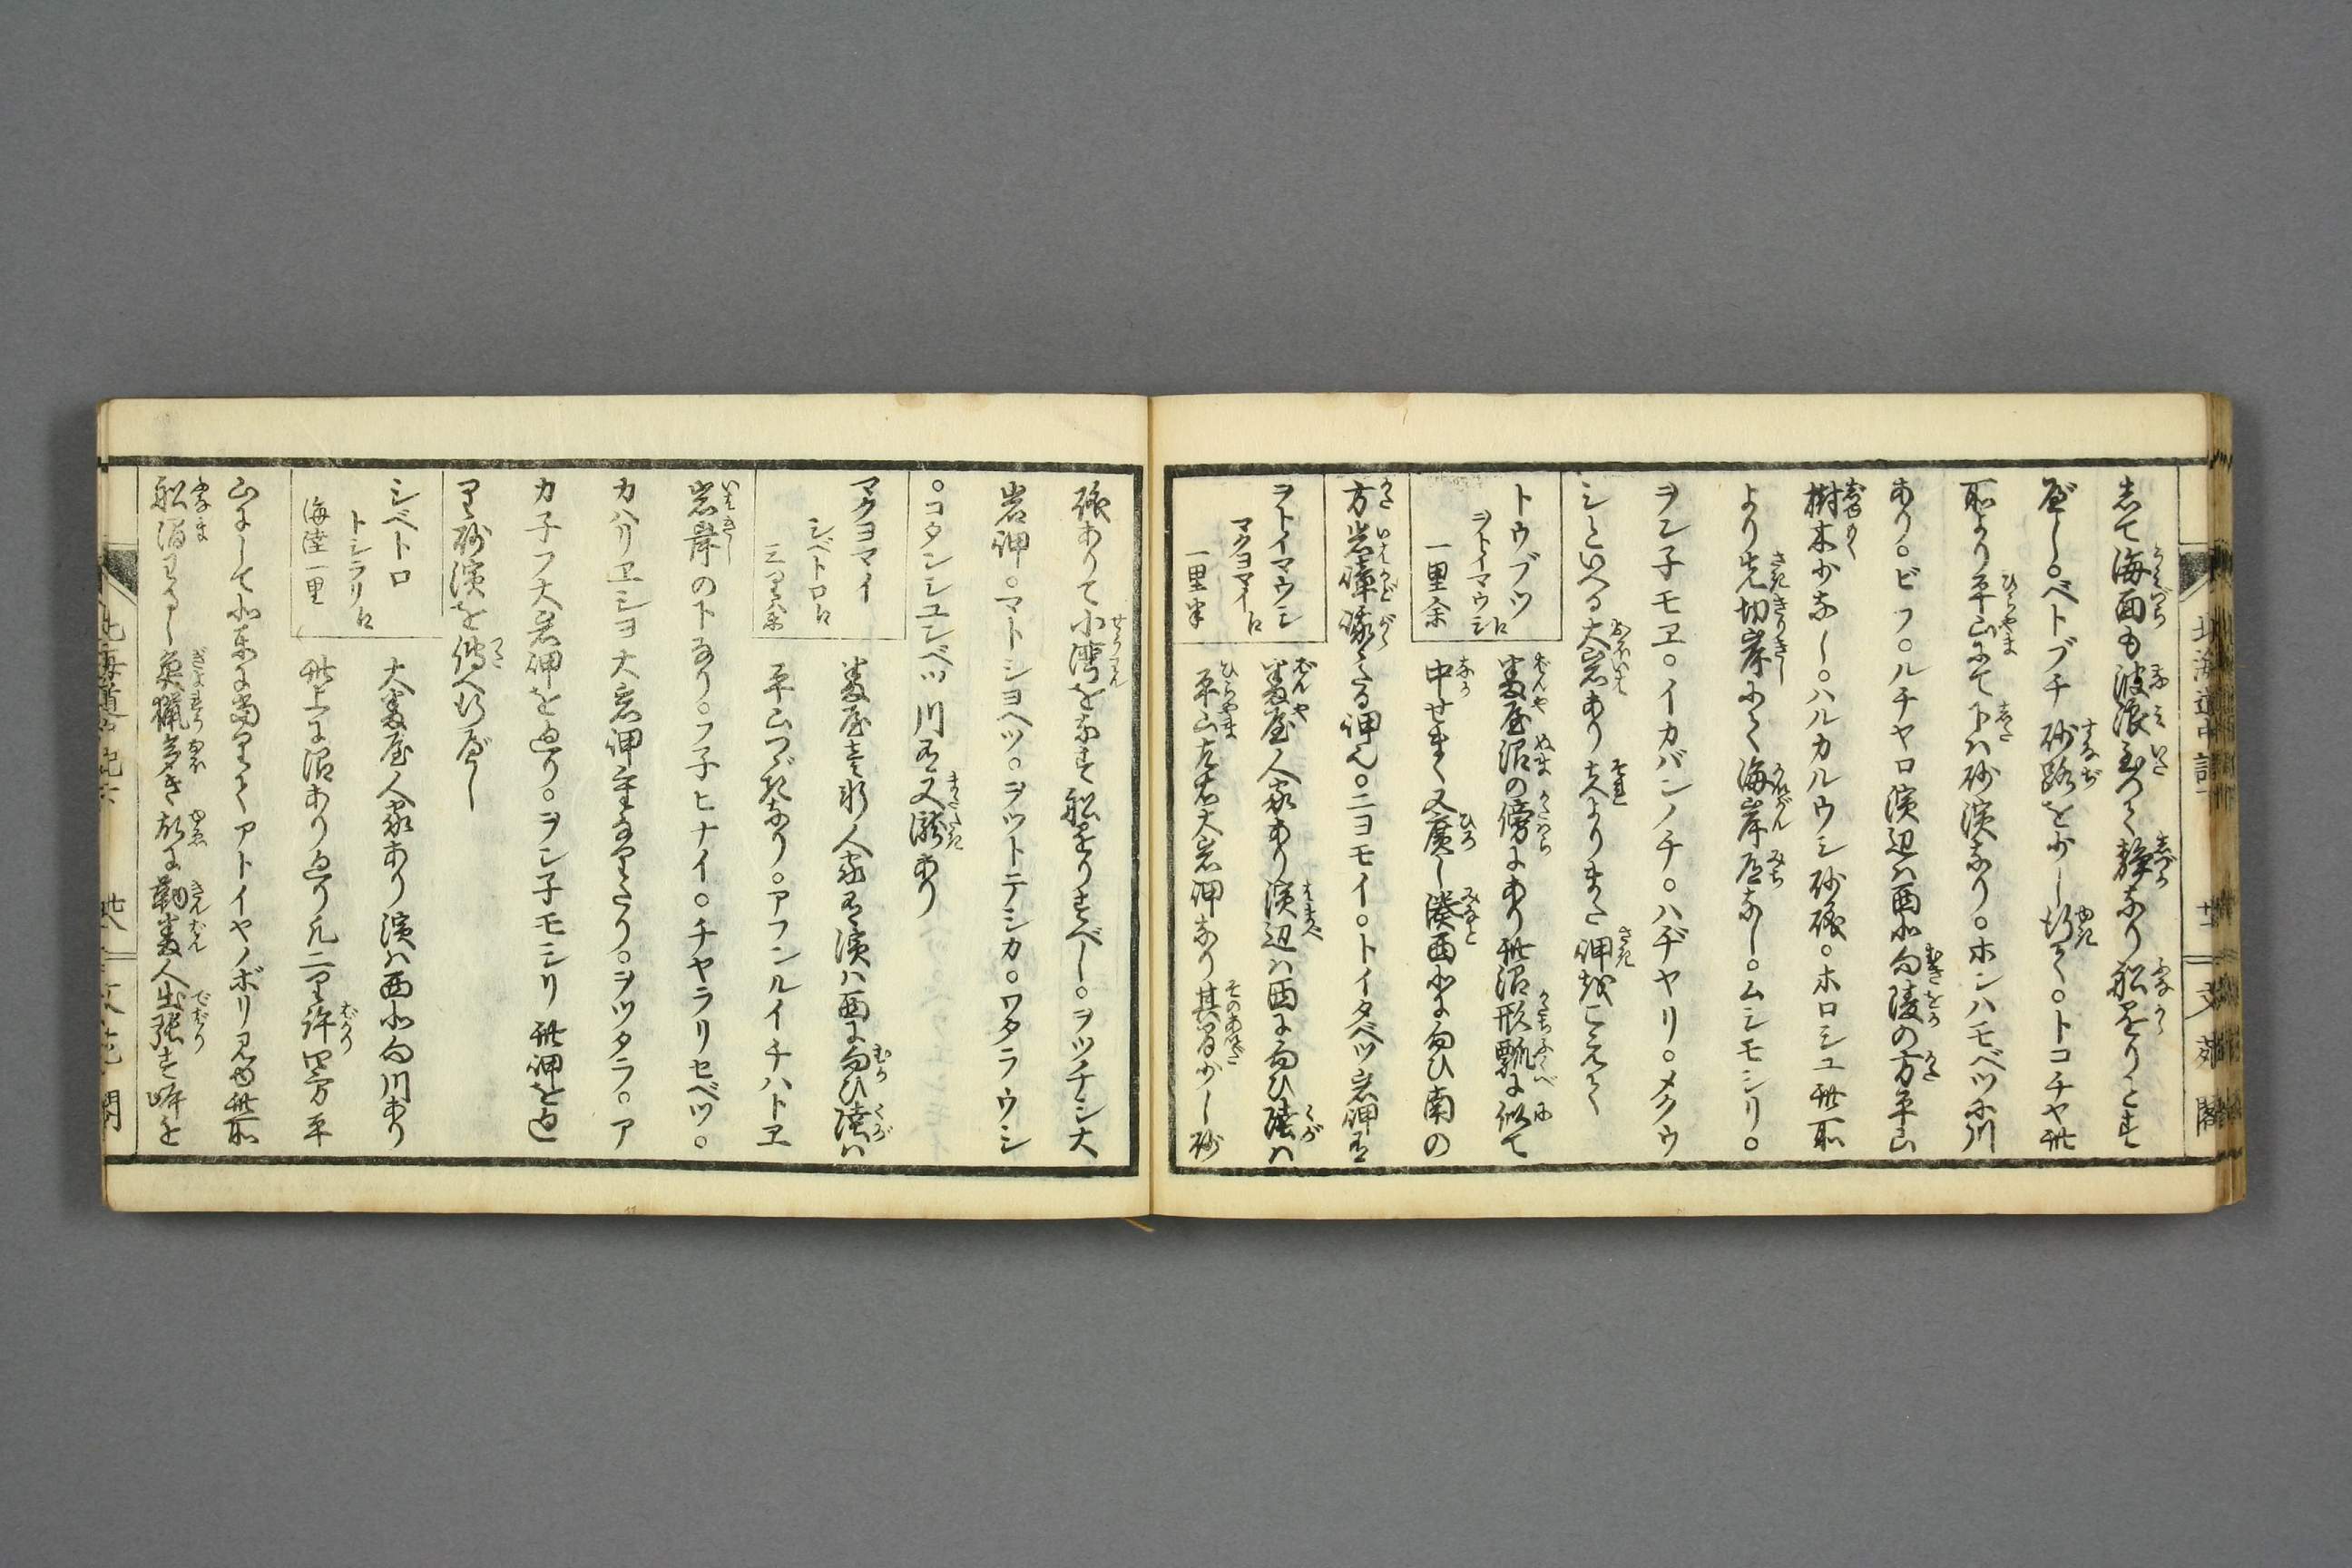 志て海面も波浪至つて静なり船をりとす
べし。ベトブチ砂路を少し行く。トコチヤ此
所より平山にて下ハ砂濱なり。ホンハモベツ小川
あり。ビフ。ルチヤロ濱辺ハ西北向陵の方平山
樹木少なし。ハルカルウシ砂磯。ホロシユ此所
より先切岸にて海岸道なし。ムシモシリ。
ヲン子モヱ。イカバンノチ。ハヂヤリ。メクウ
シといへる大岩あり夫よりまた岬越こえて
トウブツ
ヲトイマウシヘ
一里余
番屋沼の傍にあり此沼形瓢に似て
中せまく又廣し湊西北に向ひ南の
方岩嶂嶮たる岬也。ニヨモイ。トイタベツ岩岬有
ヲトイマウシ
マクヨマイヘ
一里半
番屋人家あり濱辺ハ西に向ひ陸ハ
平山左右大岩岬あり其間少し砂
磯ありて小湾をなす船をりすべし。ヲツチシ大
岩岬。マトシヨヘツ。ヲツトテシカ。ワタラウシ
。コタンシユンベツ川有又瀧あり
マクヨマイ
シベトロヘ
三里余
番屋壱軒人家有濱ハ西に向ひ陸ハ
平山つゞきなり。アフンルイチハトヱ
岩岸の下なり。フ子ヒナイ。チヤラリセベツ。
カハリヱシヨ大岩岬
カ子フ大岩岬を廻り。ヲン子モシリ此岬を廻
り砂濱を傳へ行べし
シベトロ
トシラリヘ
海陸一里
大番屋人家あり濱ハ西北向川あり
此上に沼あり廻り凡二里許四方平
山にして北東に當りてアトイヤノボリ見ゆ此所
船澗よろし魚猟多き故に勤番人出張す峠を
北海道中記
文苑閣